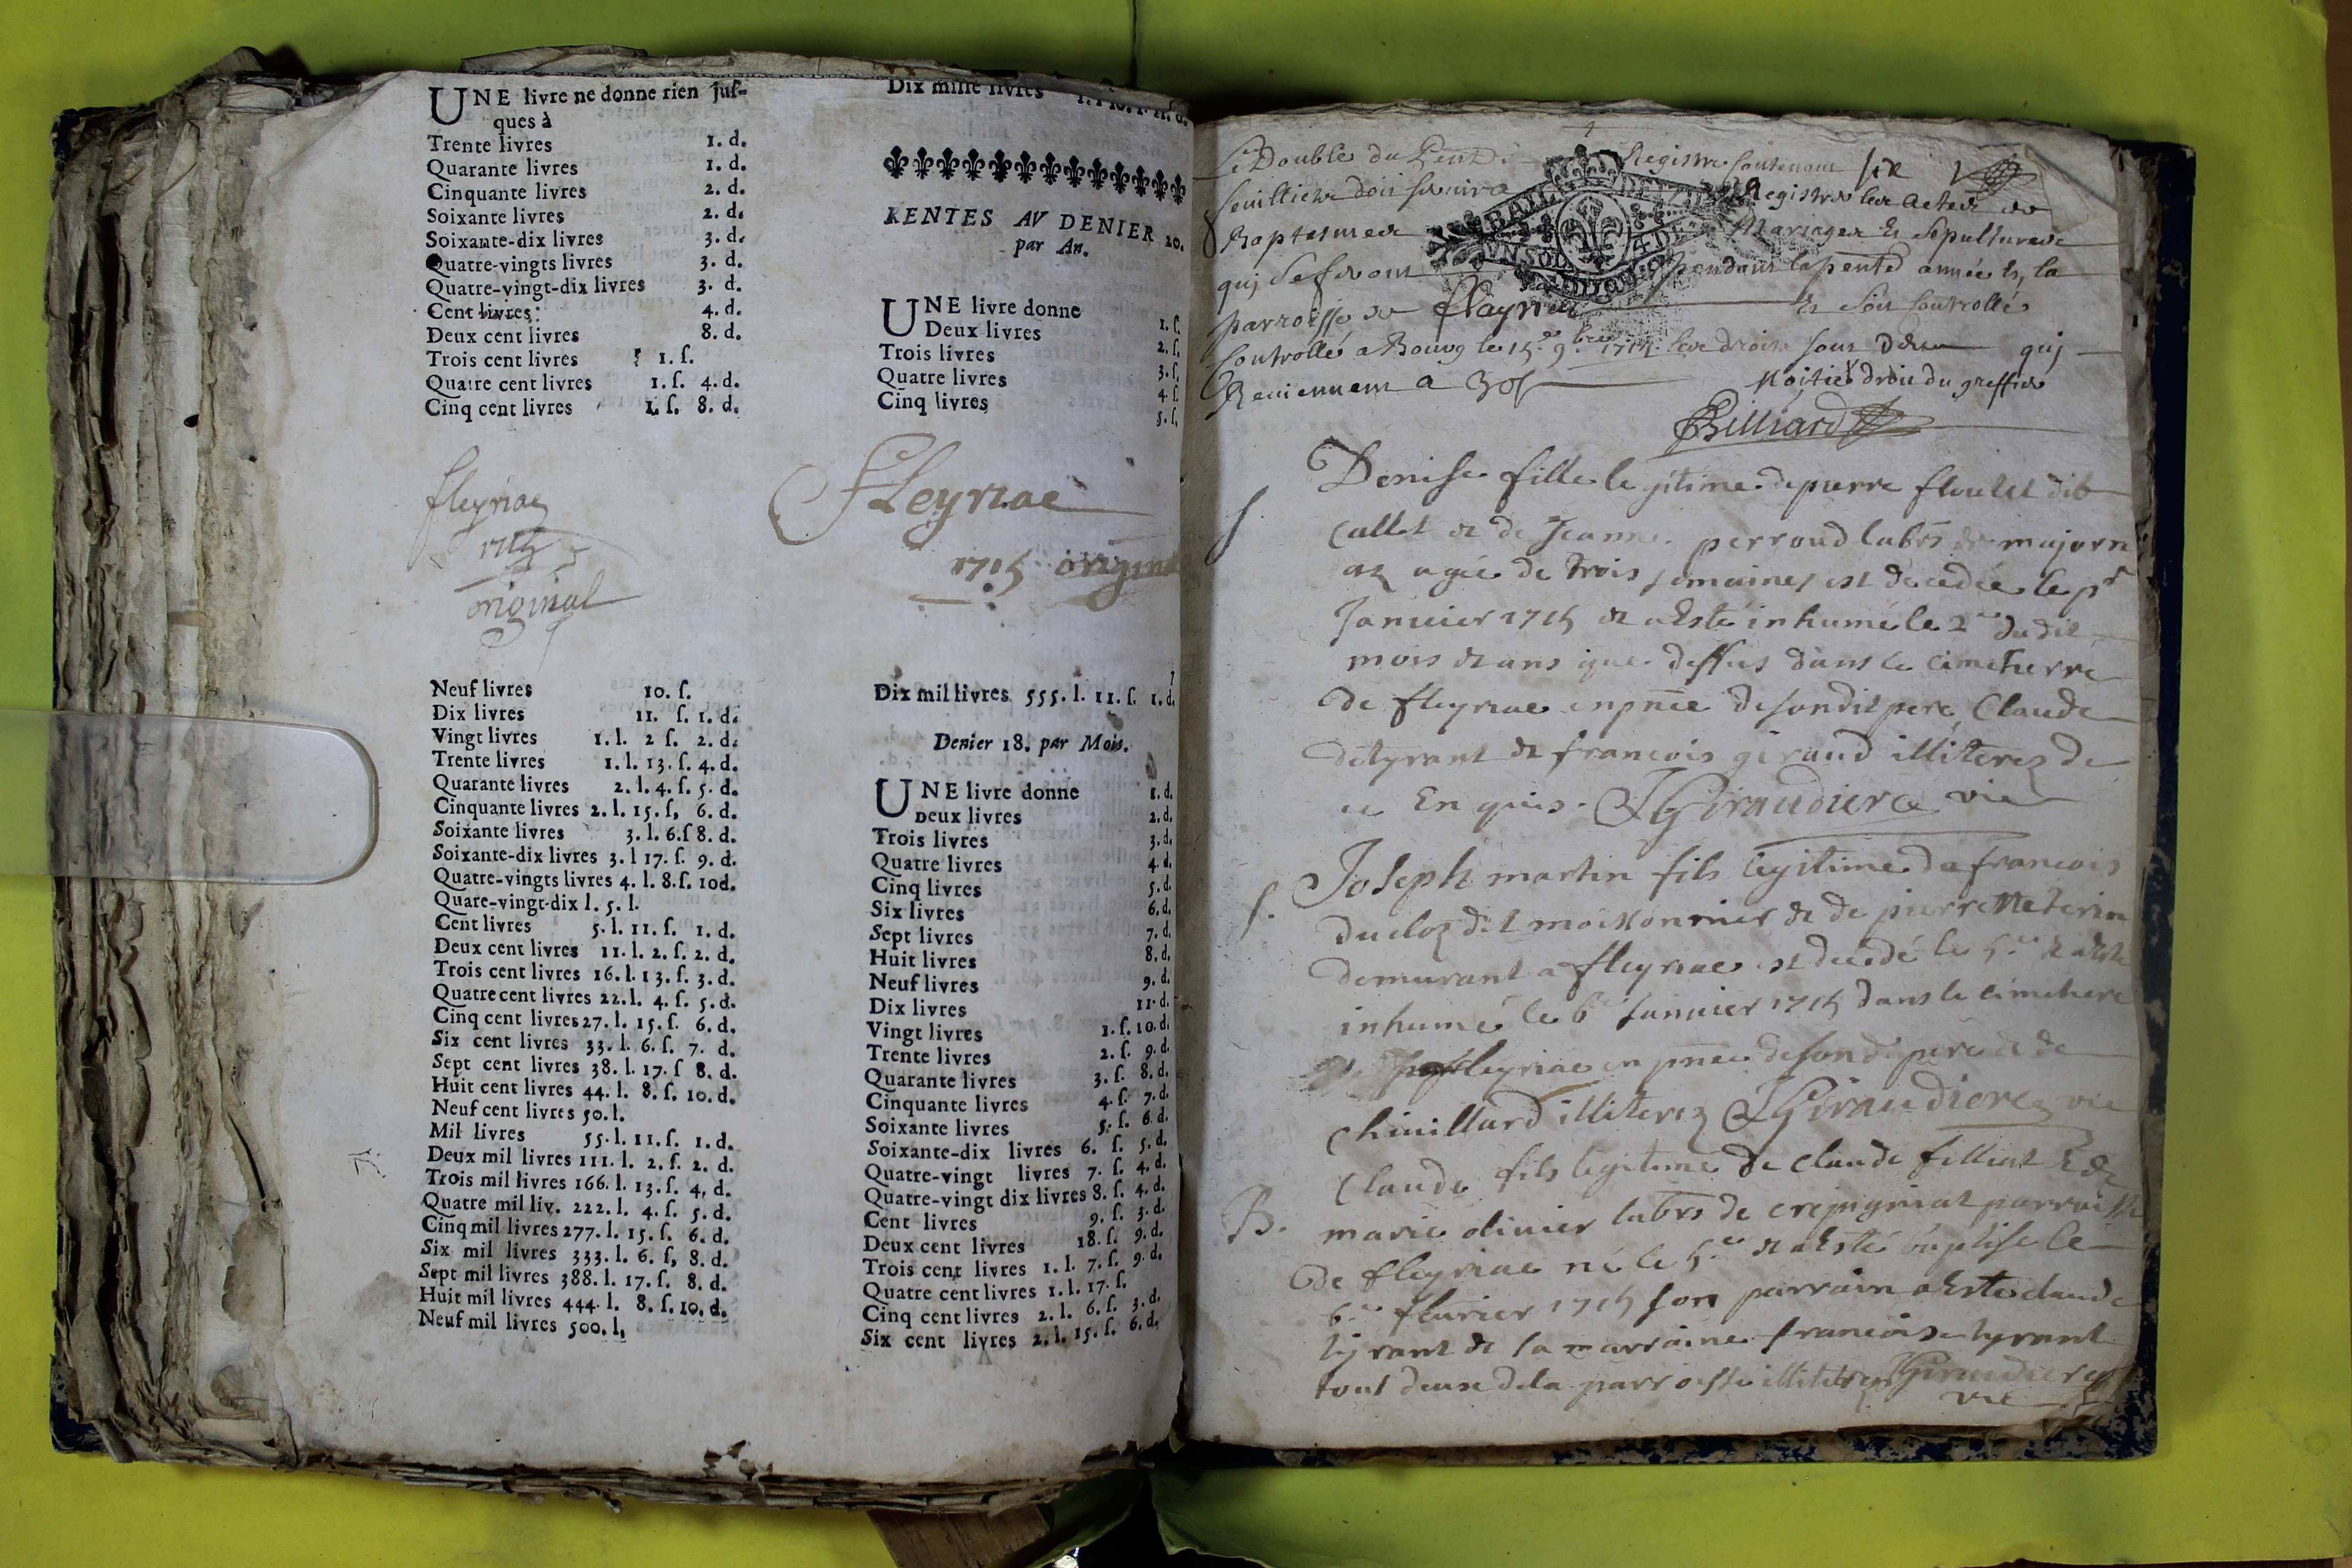 UNE livre ne donne rien juſ-
ques à
Trente livres 1. d.
Quarante livres 1. d.
Cinquante livres 2. d.
Soixante livres 2. d.
Soixante-dix livres 3. d.
Quatre-vingts livres 3. d.
Quatre-vingt-dix livres 3. d.
Cent livres: 4. d.
Deux cent livres 8. d.
Trois cent livres 1. ſ.
Quatre cent livres 1. ſ. 4. d.
Cinq cent livres 1. ſ. 8. d.
fleyriac
1715
original
Neuf livres 10. ſ.
Dix livres 11. ſ. 1. d.
Vingt livres 1. l. 2 ſ. 2. d.
Trente livres 1. l. 13. ſ. 4. d.
Quarante livres 2. l. 4. ſ. 5. d.
Cinquante livres 2. l. 15. ſ, 6. d.
Soixante livres 3. l. 6. ſ 8. d.
Soixante-dix livres 3. l 17. ſ. 9. d.
Quatre-vingts livres 4. l. 8. ſ. 10d.
Quare-vingt-dix l. 5. l.
Cent livres 5. l. 11. ſ. 1. d.
Deux cent livres 11. l. 2. ſ. 2. d.
Trois cent livres 16. l. 13. ſ. 3. d.
Quatre cent livres 22. l. 4. ſ. 5. d.
Cinq cent livres 27. l. 15. ſ. 6. d.
Six cent livres 33. l. 6. ſ. 7. d.
Sept cent livres 38. l. 17. ſ 8. d.
Huit cent livres 44. l. 8. ſ. 10. d.
Neuf cent livres 50. l.
Mil livres 55. l. 11. ſ. 1. d.
Deux mil livres 111. l. 2. ſ. 2. d.
Trois mil livres 166. l. 13. ſ. 4, d.
Quatre mil liv. 222. l. 4. ſ. 5. d.
Cinq mil livres 277. l. 15. ſ. 6. d.
Six mil livres 333. l. 6. ſ, 8. d.
Sept mil livres 388. l. 17. ſ. 8. d.
Huit mil livres 444. l. 8. ſ. 10. d.
Neuf mil livres 500. l,
Dix mille livres
RENTES AV DENIER 20.
par An.
UNE livre donne 1. ſ.
Deux livres 2. ſ.
Trois livres 3. ſ.
Quatre livres 4 ſ.
Cinq livres 5. ſ.
Fleyriac
1715 original
Dix mil livres 555. l. 11. ſ. 1. d.
Denier 18. par Mois.
UNE livre donne 1. d.
Deux livres 2. d.
Trois livres 3. d.
Quatre livres 4 d.
Cinq livres 5. d.
Six livres 6. d.
Sept livres 7. d.
Huit livres 8. d.
Neuf livres 9. d.
Dix livres 11. d.
Vingt livres 1. ſ. 10. d.
Trente livres 2. ſ. 9. d.
Quarante livres 3. ſ. 8. d.
Cinquante livres 4. ſ. 7. d.
Soixante livres 5. ſ. 6 d.
Soixante-dix livres 6. ſ. 5. d.
Quatre-vingt livres 7. ſ. 4. d.
Quatre-vingt dix livres 8. ſ. 4. d.
Cent livres 9. ſ. 3. d.
Deux cent livres 18. ſ. 9. d.
Trois cent livres 1. l. 7. ſ. 9. d.
Quatre cent livres 1. l. 17. ſ.
Cinq cent livres 2. l. 6. ſ. 3. d.
Six cent livres 2. l. 15. ſ. 6. d.
Le Double du Registre Contenant six
feuilliets doit servir a Registrer les Actes de
Baptesmes Mariages Et Sepultures
qui se feront pendant la année Et, la
parroisse de flayriat Et Soit Controllé
Controllé a Bourg le 15e 9bre 1714. les droits qui
Reviennent a 30s Moitié droit du greffier
Billiard
Denise fille legitime de pierre
S. Callet et de Jeanne perroud labrs de majorn
az agée de trois semaines est décédée le pr
Januier 1715 et a Esté inhumé le 2e dudit
mois et ans que dessus dans le cimetierre
de fleyriac en pnce de sondit pere, Claude
tyrant et francois giraud illiterez de
ce Enquis. Giraudier vic
Joseph martin fils legitime de francois
S. ducloz dit moissonnier et de pierrette
demurant a fleyriac est décédé le 5e et a esté
inhumé le 6e Januier 1715 dans le cimetiere
fleyriac en pnce de sondit pere et de
chivillard illiterez Giraudier vic
Claude fils legitime de claude filliat Et de
B. marie oliuier labrs de crepigniat parroisse
de fleyriac né le 5e et a Esté baptisé le
6e feurier 1715 son parrain a Esté claude
tyrant et sa marraine francoise tyrant
tout deux de la parroisse illiterez Giraudier
vic